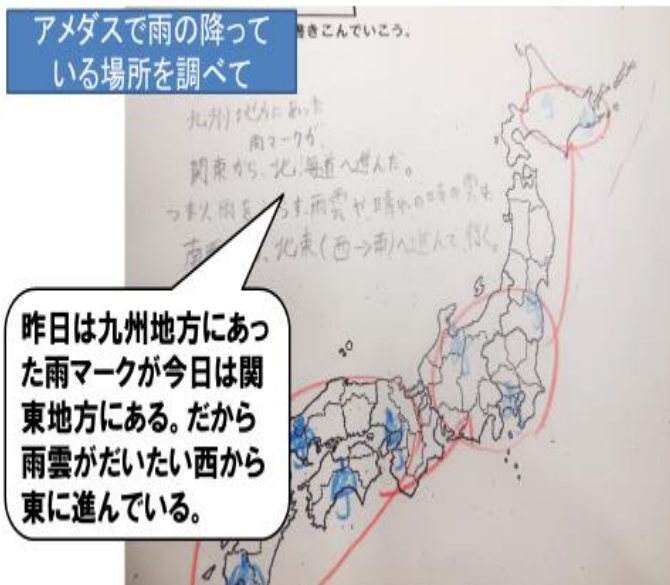 アメダスで雨の降って
いる場所を調べて
書きこんでいこう。
九州地方にあった
雨マークが、
関東から、北海道へ進んだ。
つまり、雨を す、雨雲や晴れの時の雲は、
北東(西→東)へ進んで行く。
昨日は九州地方にあっ
た雨マークが今日は関
東地方にある。だから
雨雲がだいたい西から
東に進んでいる。